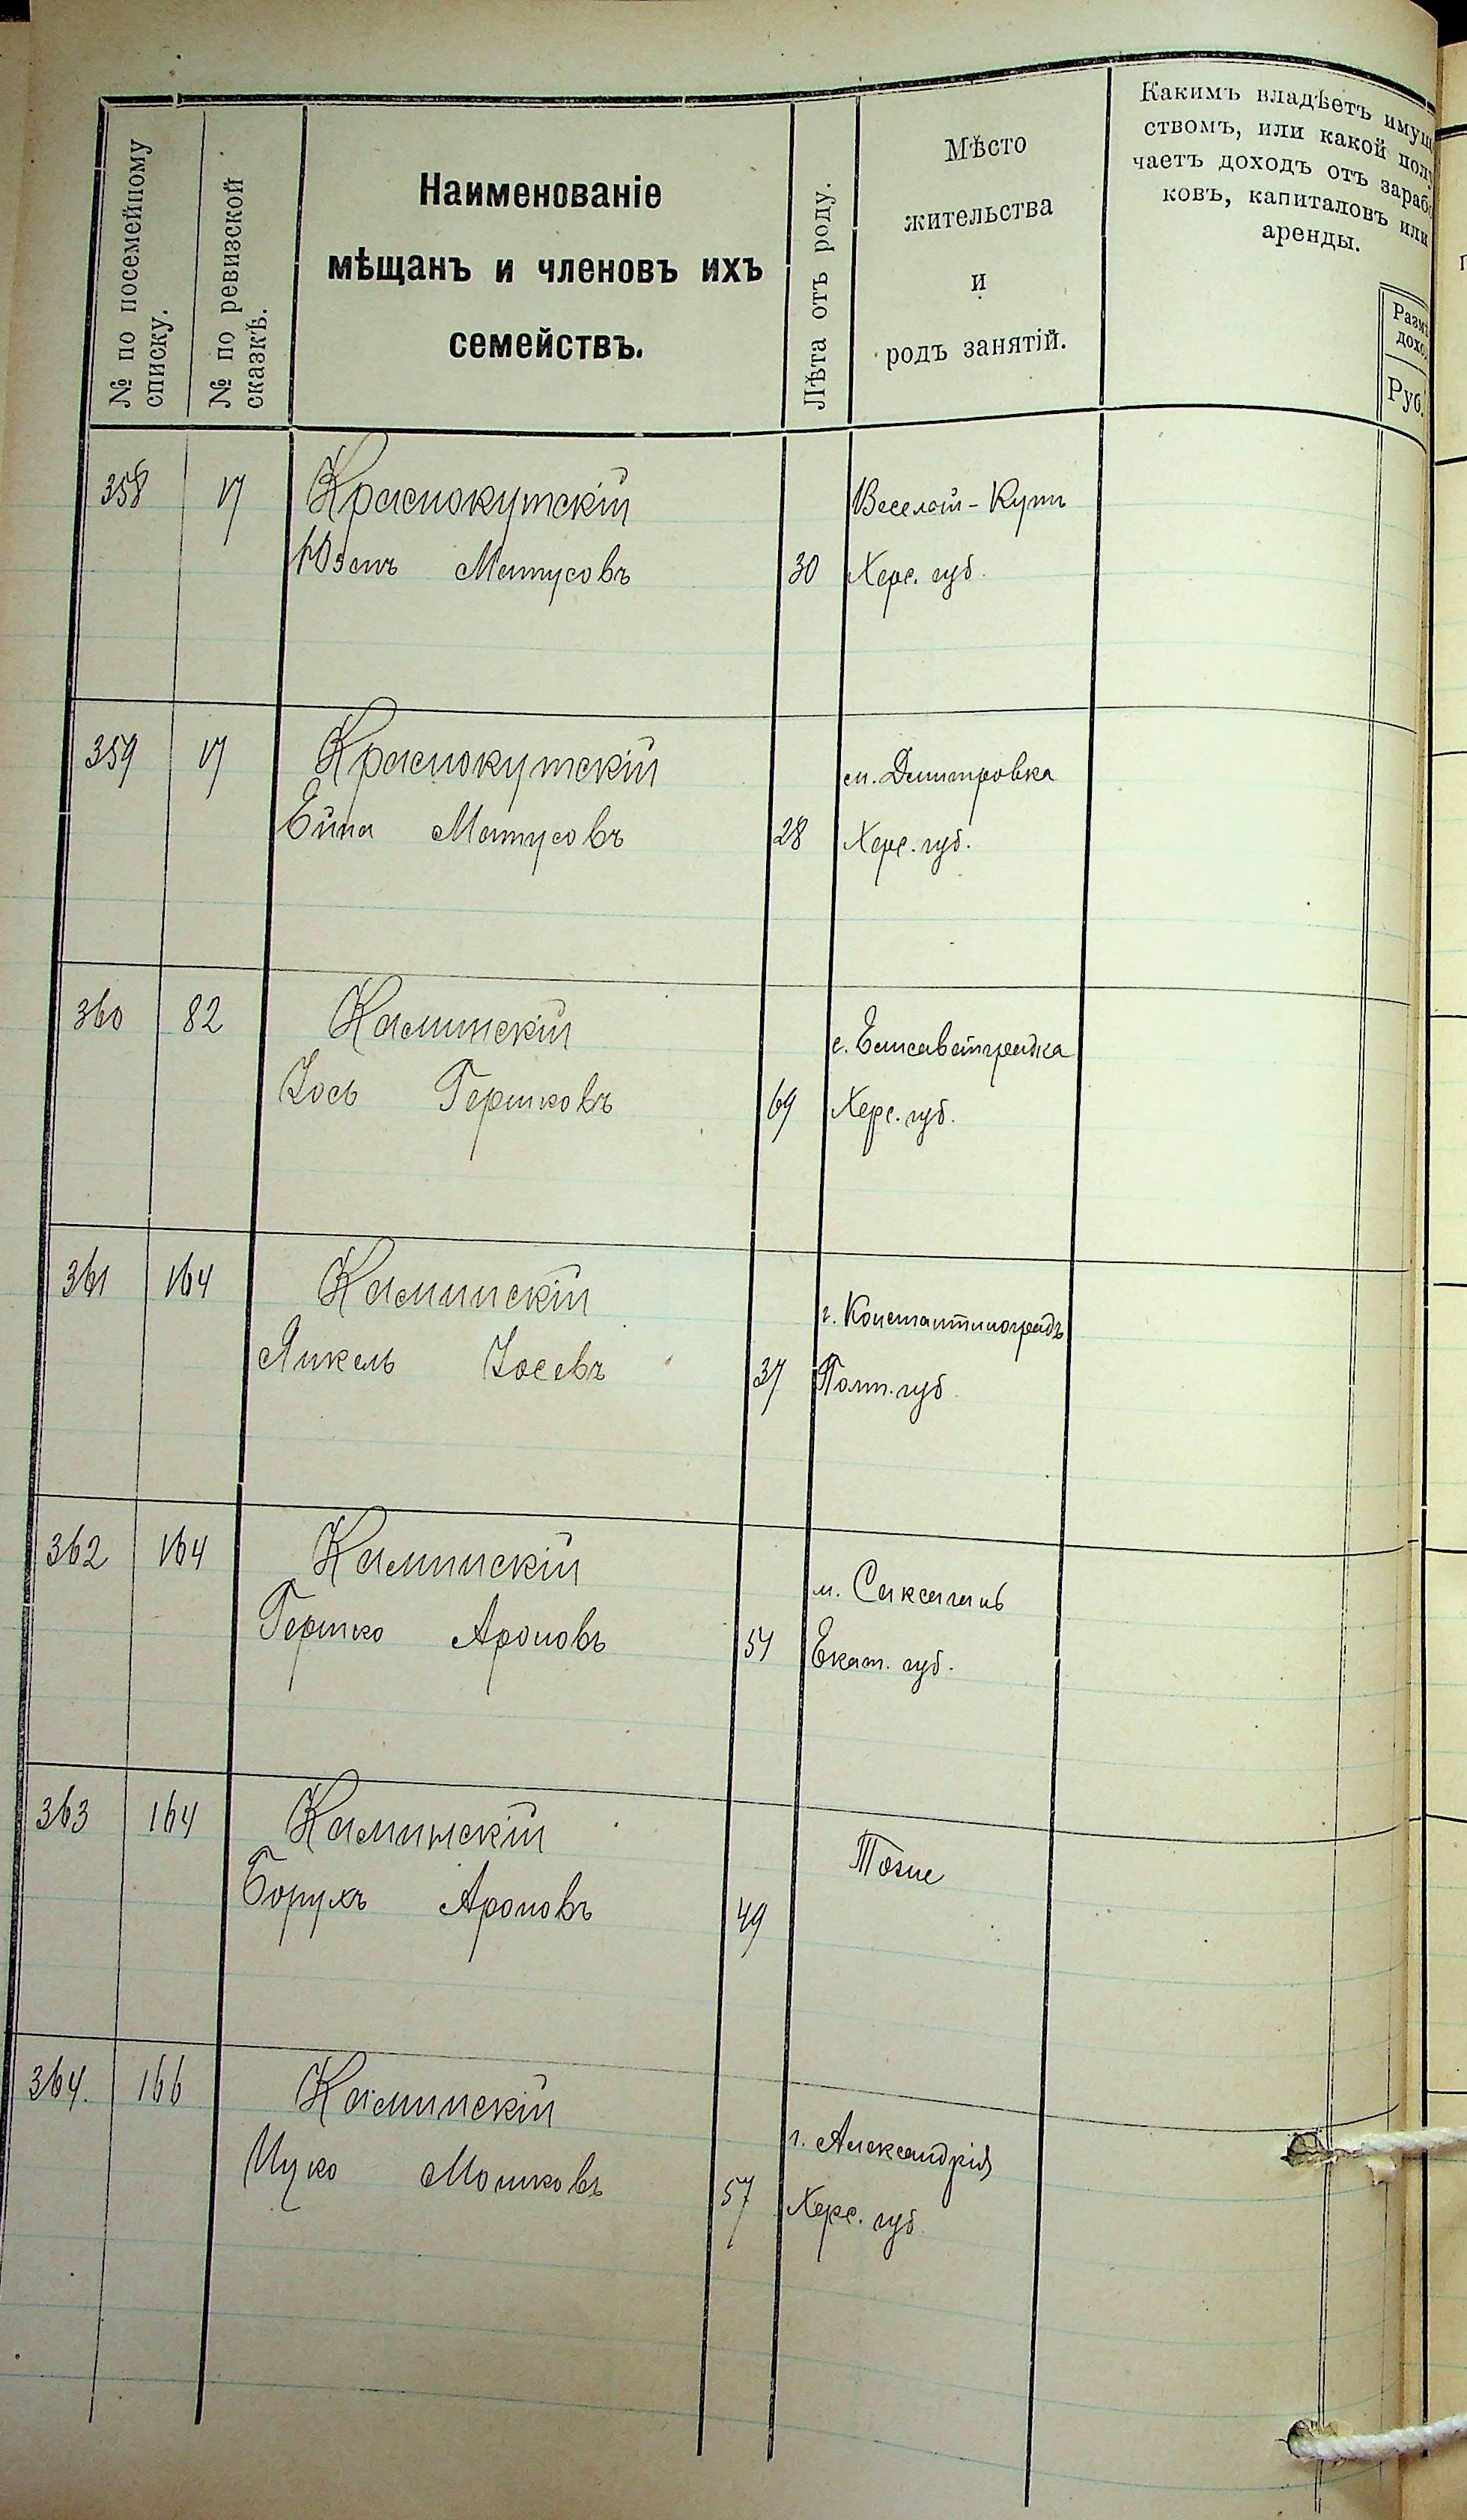 № по посемейному
списку.
№ по ревизской
сказкѣ.
Наименованіе
мѣщанъ и членовъ ихъ
семействъ.
Лѣта отъ роду.
Мѣсто
жительства
и
родъ занятій.
Какимъ владѣетъ имущ
ствомъ, или какой полу
чаетъ доходъ отъ зарабо
ковъ, капиталовъ или
аренды.
Разм
дохо
Руб.
358 17 Краснокутскій Веселый-Кутъ
Матусовъ 30 Херс. губ.
359 17 Краснокутскій м. Димитровка
Ейна Матусовъ 28 Херс. губ.
360 82 Каминскій с. Елисаветградка
Іось Гершковъ 69 Херс. губ.
361 164 Каминскій г. Константиноградъ
Янкель Іосевъ 37 Полт. губ.
362 164 Каминскій м. Саксагань
Гершко Ароновъ Екат. губ.
363 164 Каминскій Тоже
Борухъ Ароновъ 49
364. 166 Каминскій г. Александрія
Ицко Мошковъ 57 Херс. губ